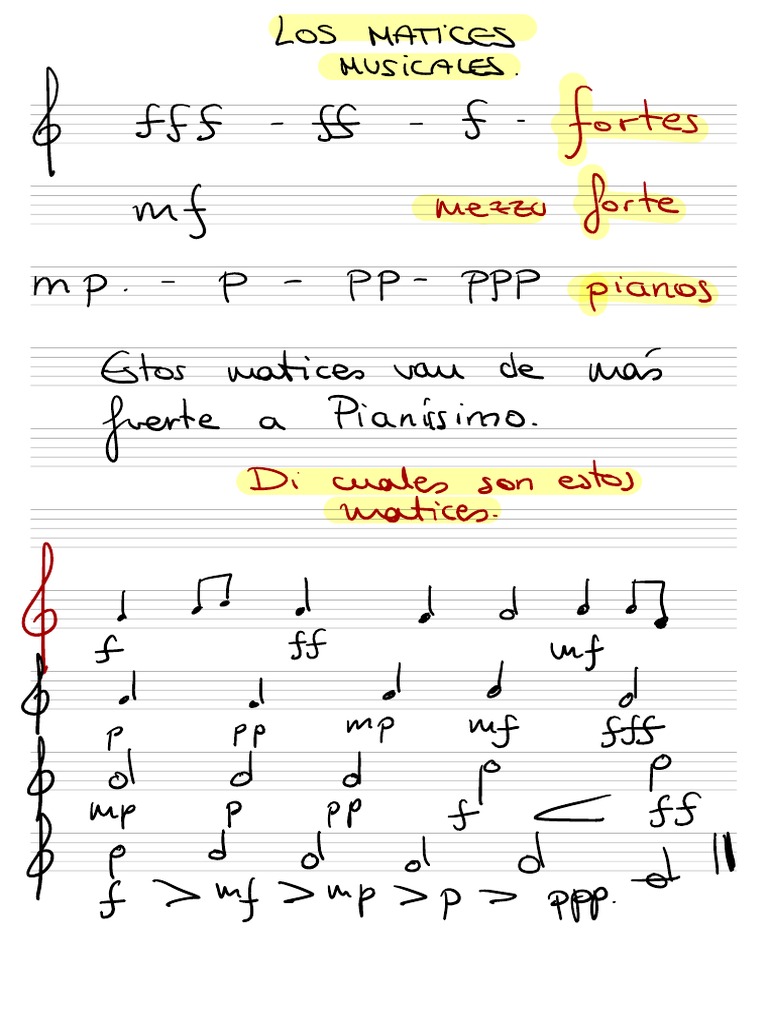 LOS MATICES
MUSICALES.
fff - ff - f - fortes
mf mezzo forte
mp. - p - pp - ppp pianos
Estos matices van de más
fuerte a Pianíssimo.
Di cuales son estos
matices.
f ff mf
p pp mp mf fff
mp p pp f < ff
f > mf > mp > p > ppp.